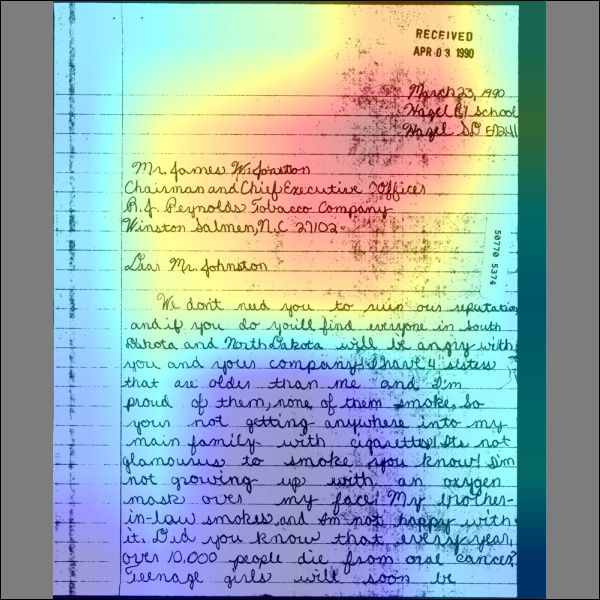 RECEIVED
APR 03 1990
March 23, 1990
Hazel El School
Hazel SD 57241
Mr. James W. Johnston
Chairman and Chief Executive Officer
R.J. Reynolds Tobacco Company
Winston Salmen, N.C 27102
50770 5374
Dear Mr. Johnston
We don't need you to ruin our reputation
and if you do you'll find everyone in South
Dakota and North Dakota will be angry with
you and your company! I have 4 sisters
that are older than me and I'm
proud of them, none of them smoke. So
your not getting anywhere into my
main family with cigarettes! Its not
glamourus to smoke you know! I'm
not growing up with an oxygen
mask over my face! My brother-
in-law smokes, and I'm not happy with
it. Did you know that every year,
over 10,000 people die from oral cancer?
Teenage girls will soon be